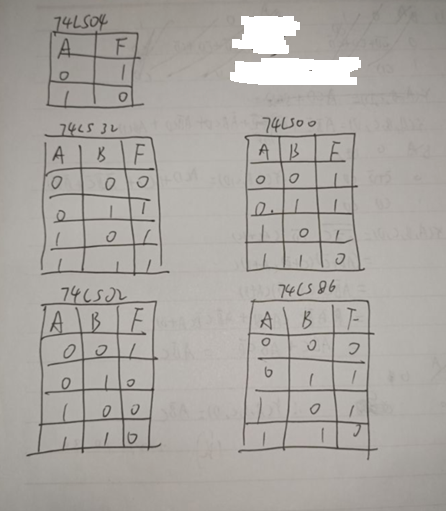 74LS04
A F
0 1
1 0
74LS32
A B F
0 0 0
0 1 1
1 0 1
1 1 1
74LS00
A B F
0 0 1
0 1 1
1 0 1
1 1 0
74LS02
A B F
0 0 1
0 1 0
1 0 0
1 1 0
74LS86
A B F
0 0 0
0 1 1
1 0 1
1 1 0